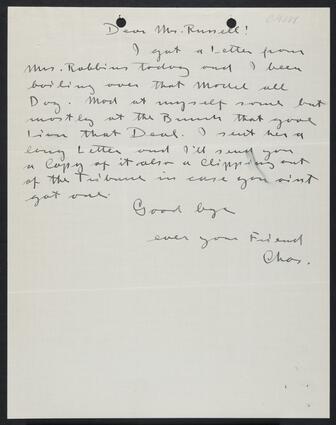 Dear Mr. Russell!
I got a Letter from
Mrs. Robbins today and I been
boiling over that Model all
Day. Mad at myself some but
mostly at the Bunch that gave
Lien that Deal. I sent her a
long Letter and I'll send you
a Copy of it also a Clipping out
of the Tribune in case you aint
got one.
Good bye
ever your Friend
Chas.